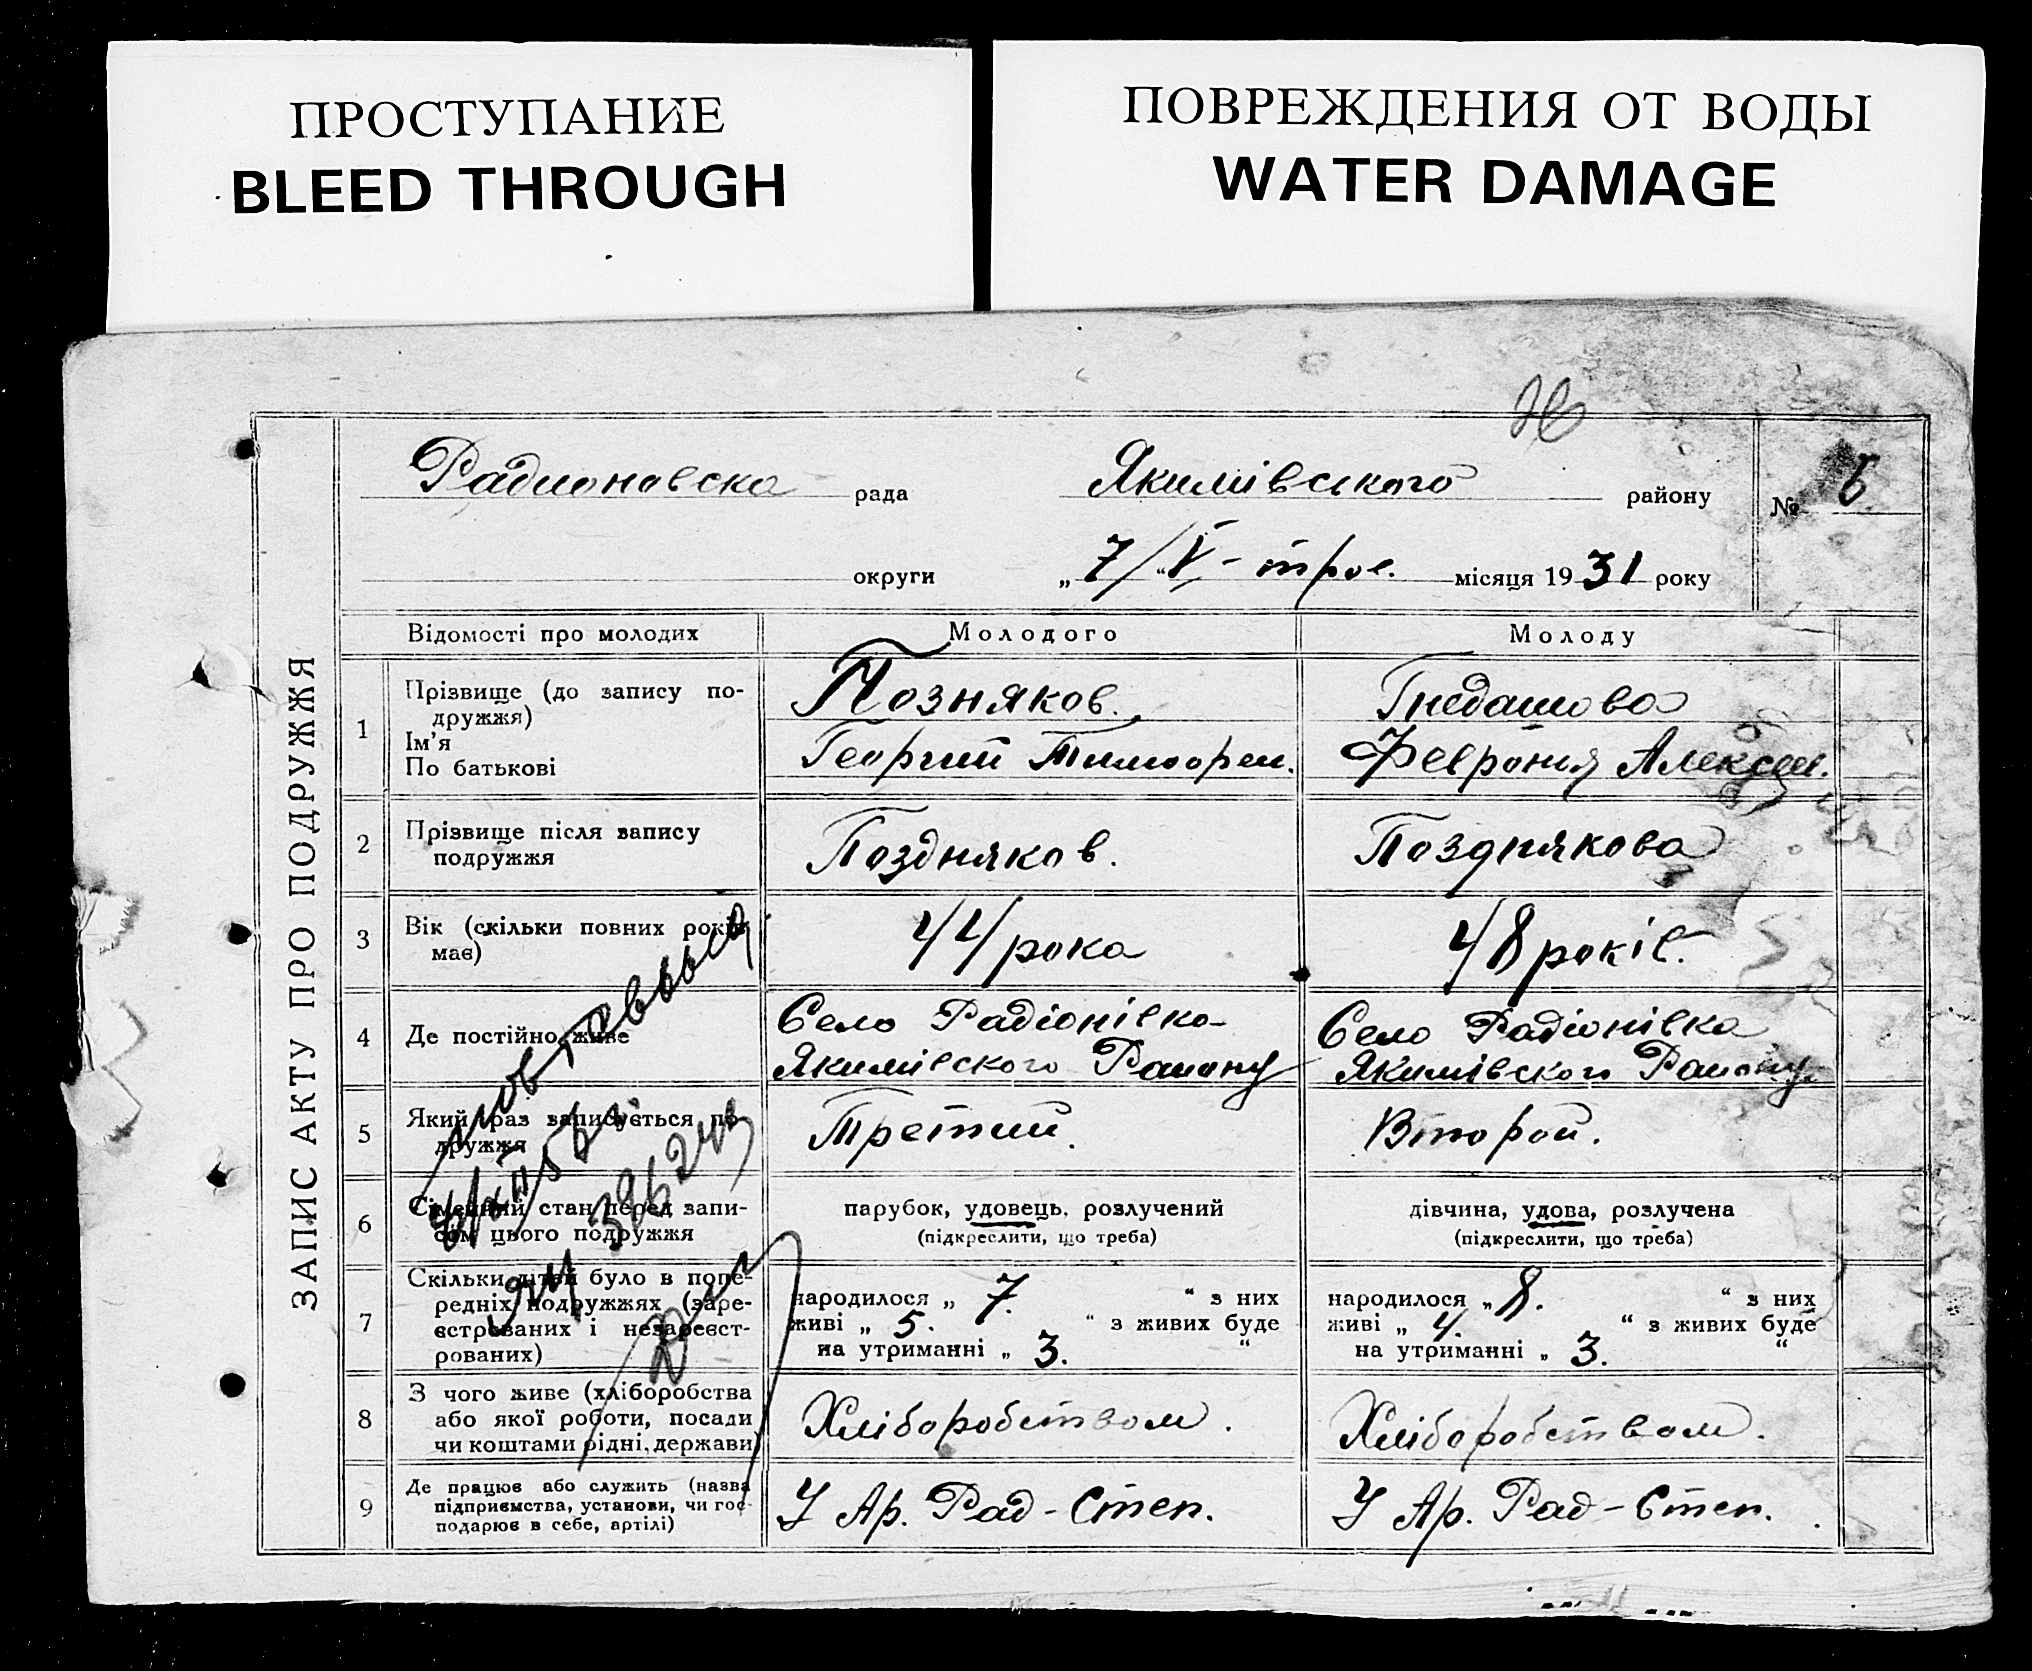 ПРОСТУПАНИЕ
BLEED THROUGH
ПОВРЕЖДЕНИЯ ОТ ВОДЫ
WATER DAMAGE
Радионовска рада Якимівського району № 6
округи „7/“V - місяця 1931 року
ЗАПИС АКТУ ПРО ПОДРУЖЖЯ
Відомості про молодих Молодого Молоду
1 Прізвище (до запису по-
дружжя)
Ім'я
По батькові
Позняков.
Георгий Тимофеи.
Гнедашова
Феврония Алексеи.
2 Прізвище після запису
подружжя
Поздняков.
Позднякова
3 Вік (скільки повних років
має)
44 рока
48 років.
4 Де постійно живе
Село Радіонівка
Якимівского Району
Село Радіонівка
Якимівского Району
5 Який раз записується по-
дружжя
Третий.
Второй.
6 Сімейний стан перед запи-
сом цього подружжя
парубок, удовець, розлучений
(підкреслити, що треба)
дівчина, удова, розлучена
(підкреслити, що треба)
7 Скільки дітей було в попе-
редніх подружжях (заре-
єстрованих і незареєст-
рованих)
народилося „ 7. “ з них
живі „ 5. “ з живих буде
на утриманні „ 3. “
народилося „ 8. “ з них
живі „ 4. “ з живих буде
на утриманні „ 3. “
8 З чого живе (хліборобства
або якої роботи, посади
чи коштами рідні, держави)
Хліборобством.
Хліборобством.
9 Де працює або служить (назва
підприємства, установи, чи гос-
подарює в себе, артілі)
У Ар. Рад-Степ.
У Ар. Рад-Степ.